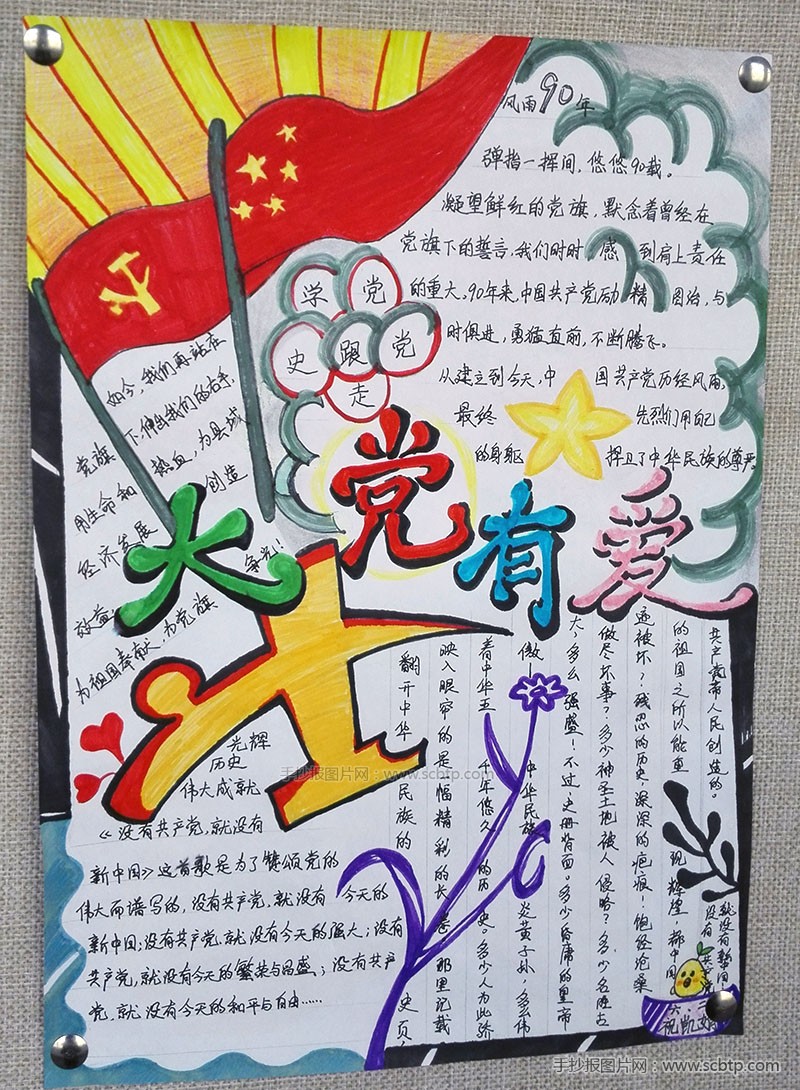 风雨90年
弹指一挥间，悠悠90载。
凝望鲜红的党旗，默念着曾经在
党旗下的誓言，我们时时感到肩上责任
的重大。90年来，中国共产党励精图治，与
时俱进，勇猛直前，不断腾飞。
从建立到今天，中国共产党历经风雨，
最终 先烈们用自己
的身躯 捍卫了中华民族的尊严。
学党
史跟党
走
大党有爱
如今，我们再站在
党旗下，伸出我们的右手，
用生命和热血，为县城
经济发展创造
效益，争光！
为祖国奉献，为党旗
光辉
历史
伟大成就
《没有共产党，就没有
新中国》这首歌是为了赞颂党的
伟大而谱写的，没有共产党，就没有今天的
新中国；没有共产党，就没有今天的强大；没有
共产党，就没有今天的繁荣与昌盛；没有共产
党，就没有今天的和平与自由……
翻开中华民族的史页，
映入眼帘的是一幅精彩的长卷，那里记载
着中华五千年悠久的历史。多少人为此骄
傲！中华民族，炎黄子孙，多么伟
大，多么强盛！不过，史册背面。多少昏庸的皇帝
做尽坏事？多少神圣土地被人侵吞？多少名迹古
迹被坏？残忍的历史，深深的疤痕！饱经沧桑
的祖国之所以能重现辉煌，都中国
共产党带人民创造的。
没有共产党
就没有新中国！
六.三
祝凯
手抄报图片网：www.scbtp.com
手抄报图片网：www.scbtp.com